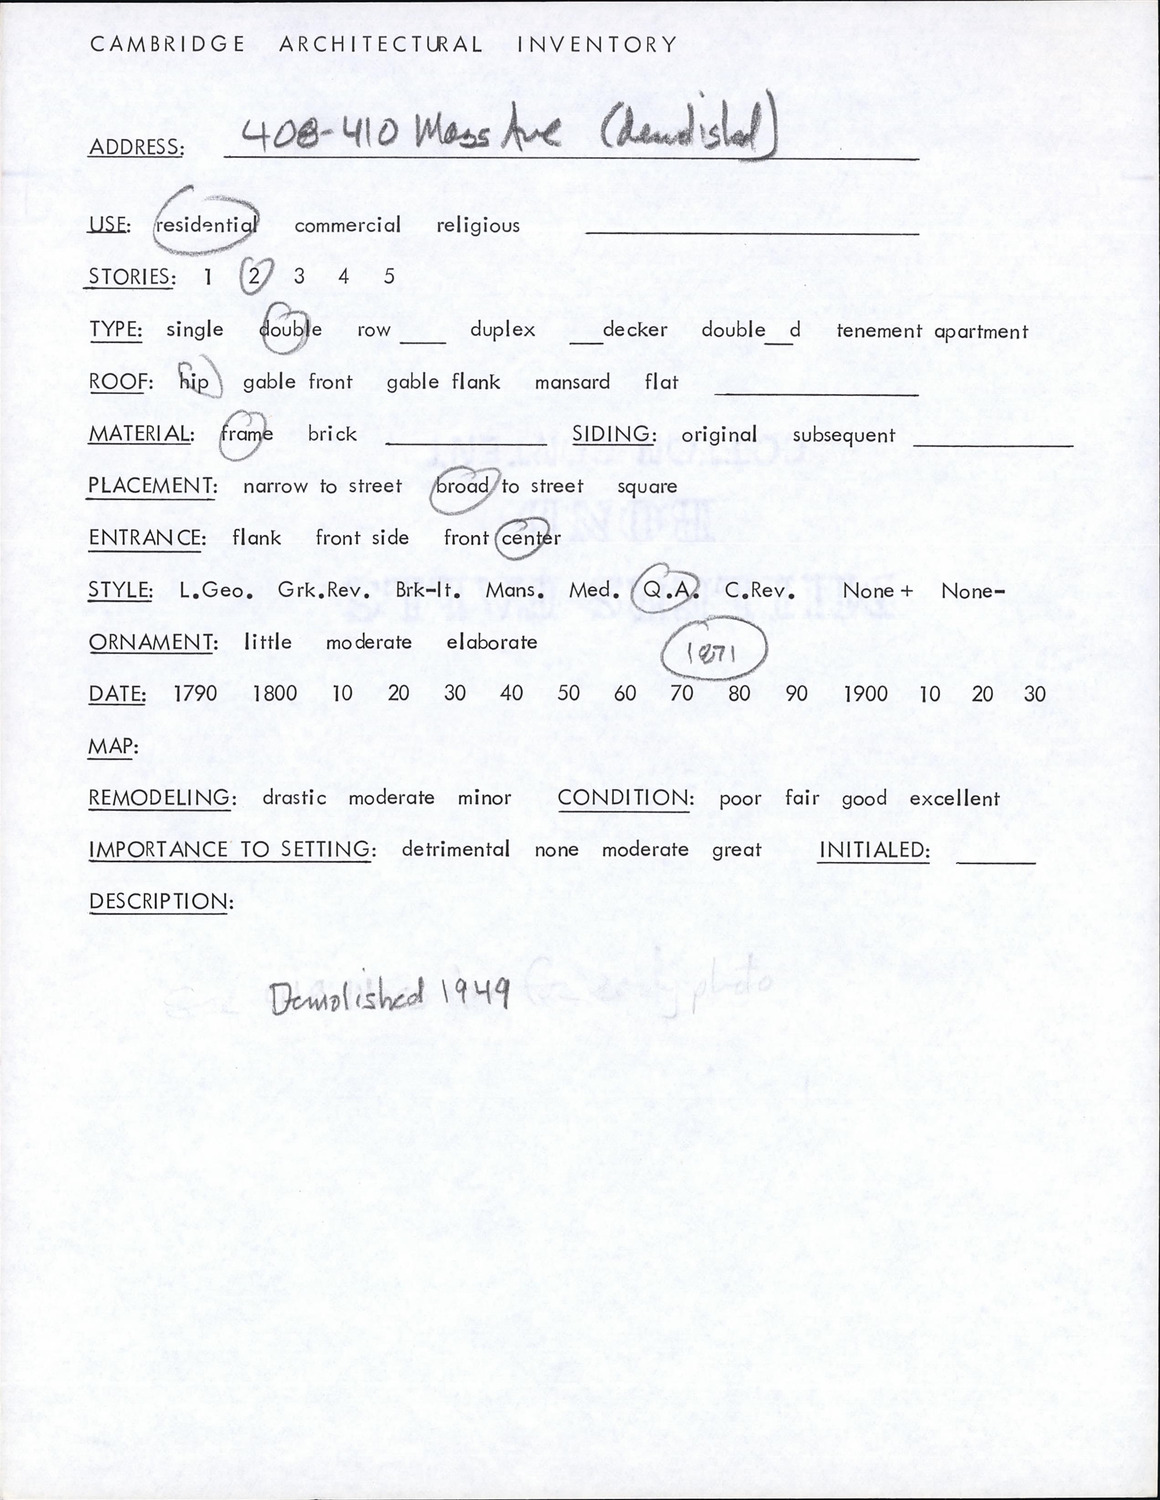 CAMBRIDGE ARCHITECTURAL INVENTORY
ADDRESS: 408-410 Mass Ave (demolished)
USE: residential commercial religious
STORIES: 1 2 3 4 5
TYPE: single double row ___ duplex ___decker double__d tenement apartment
ROOF: hip gable front gable flank mansard flat
MATERIAL: frame brick ___ SIDING: original subsequent ___
PLACEMENT: narrow to street broad to street square
ENTRANCE: flank front side front center
STYLE: L.Geo. Grk.Rev. Brk-It. Mans. Med. Q.A. C.Rev. None+ None-
ORNAMENT: little moderate elaborate
1871
DATE: 1790 1800 10 20 30 40 50 60 70 80 90 1900 10 20 30
MAP:
REMODELING: drastic moderate minor CONDITION: poor fair good excellent
IMPORTANCE TO SETTING: detrimental none moderate great INITIALED: ___
DESCRIPTION:
Demolished 1949
early photo